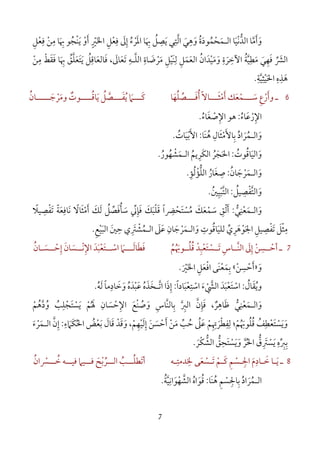 وَأَمَّا الدُّنْيَا الـمَحْمُودَةُ وَهِيَ الَّتِي يَصِلُ بِهَا الْمَرْءُ إِلَى فِعْلِ الْخَيْرِ أَوْ يَنْجُو بِهَا مِنْ فِعْلِ
الشَّرِّ فَهِيَ مَطِيَّةُ الآخِرَةِ وَمَيْدَانُ العَمَلِ لِنَيْلِ مَرْضَاةِ اللَّـهِ تَعَالَى، فَالعَاقِلُ يَتَعَلَّقُ بِهَا فَقَطْ مِنْ
هَذِهِ الْحَيْثِيَّةِ.
6 ـ وأَرْعِ سَــمْعَكَ أَمْثَــالاً أُفَــصِّلُهَا كَــمَا يُفَــصَّلُ يَاقُــوتٌ ومَرْجَــانُ
الإِرْعَاءُ: هو الإِصْغَاءُ.
وَالـمُرَادُ بِالأَمْثَالِ هُنَا: الأَبْيَاتُ.
وَاليَاقُوتُ: الحَجَرُ الكَرِيمُ الـمَشْهُورُ.
وَالـمَرْجَانُ: صِغَارُ اللُّؤْلُؤِ.
وَالتَّفْصِيلُ: التَّبْيِينُ.
وَالـمَعْنِيُّ: أَلْقِ سَمْعَكَ مُسْتَحْضِراً قَلْبَكَ فَإِنِّي سَأُفَصِّلُ لَكَ أَمْثَالًا نَافِعَةً تَفْصِيلًا
مِثْلَ تَفْصِيلِ الْجَوْهَرِيِّ لليَاقُوتِ وَالـمَرْجَانِ عَلَى الـمُشْتَرِي حِينَ البَيْعِ.
7 ـ أَحْسِنْ إِلَى النَّـاسِ تَسْتَعْبِدْ قُلُــوبَهُمُ فَطَالَــمَا اسْــتَعْبَدَ الإِنْــسَانَ إِحْــسَانُ
وَ«أَحْسِنْ» بِمَعْنَى افْعَلِ الْخَيْرَ.
ويُقَالُ: اسْتَعْبَدَ الشَّيْءَ اسْتِعْبَاداً: إِذَا اتَّخَذَهُ عَبْدَهُ وَخَادِماً لَهُ.
وَالـمَعْنِيُّ ظَاهِرٌ، فَإِنَّ البِرَّ بِالنَّاسِ وَصُنْعَ الإِحْسَانِ لَهُمْ يَسْتَجْلِبُ وُدَّهُمْ
وَيَسْتَعْطِفُ قُلُوبَهُمْ؛ لِفِطْرَتِهِمْ عَلَى حُبِّ مَنْ أَحْسَنَ إِلَيْهِمْ، وَقَدْ قَالَ بَعْضُ الْحُكَمَاءِ: إِنَّ الـمَرْءَ
بِبِرِّهِ يَسْتَرِقُّ الحُرَّ وَيَسْتَحِقُّ الشُّكْرَ.
8 ـ يَـا خَـادِمَ الْجِسْمِ كَـمْ تَسْعَى لِخِدمَتِـهِ أَتَطْلُــبُ الـرِّبْحَ فــيما فيــه خُــسْرانُ
الـمُرَادُ بِالْجِسْمِ هُنَا: قُوَاهُ الشَّهْوَانِيَّةُ.
7